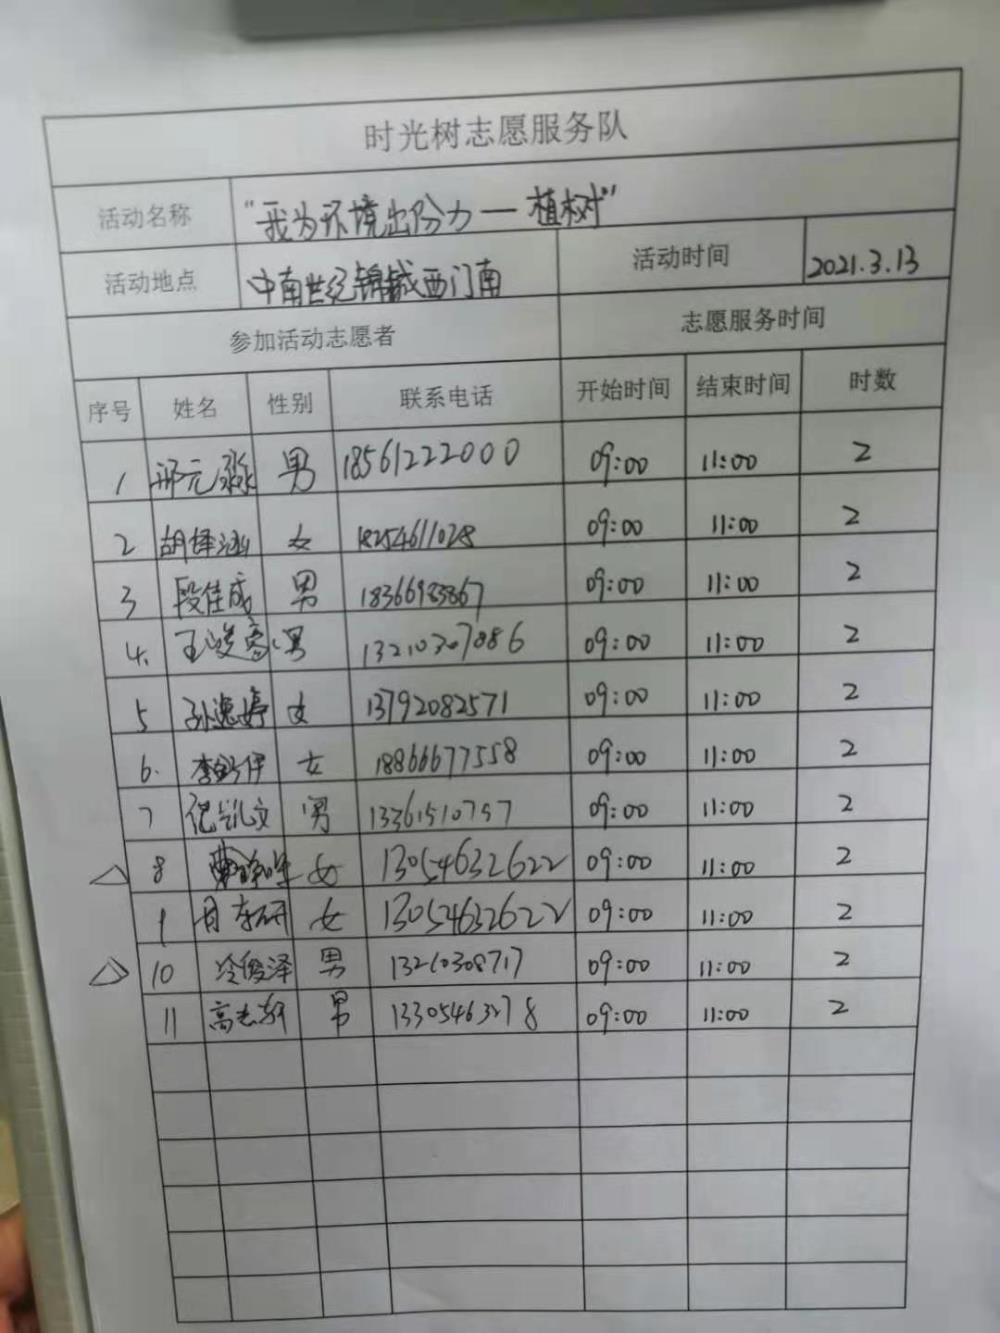 时光树志愿服务队
活动名称 "我为环境出份力一植树"
活动地点 中南世纪锦城西门南 活动时间 2021.3.13
参加活动志愿者 志愿服务时间
序号 姓名 性别 联系电话 开始时间 结束时间 时数
1 邢元淼 男 18561222000 09:00 11:00 2
2 胡 涵 女 18254611028 09:00 11:00 2
3 段佳成 男 09:00 11:00 2
4. 王 男 13210307886 09:00 11:00 2
5 孙逸婷 女 13792082571 09:00 11:00 2
6. 李 伊 女 18866677558 09:00 11:00 2
7 倪凯文 男 13361510757 09:00 11:00 2
8 女 13054632622 09:00 11:00 2
9 女 13054632622 09:00 11:00 2
10 冷俊泽 男 09:00 11:00 2
11 高志轩 男 13305463278 09:00 11:00 2